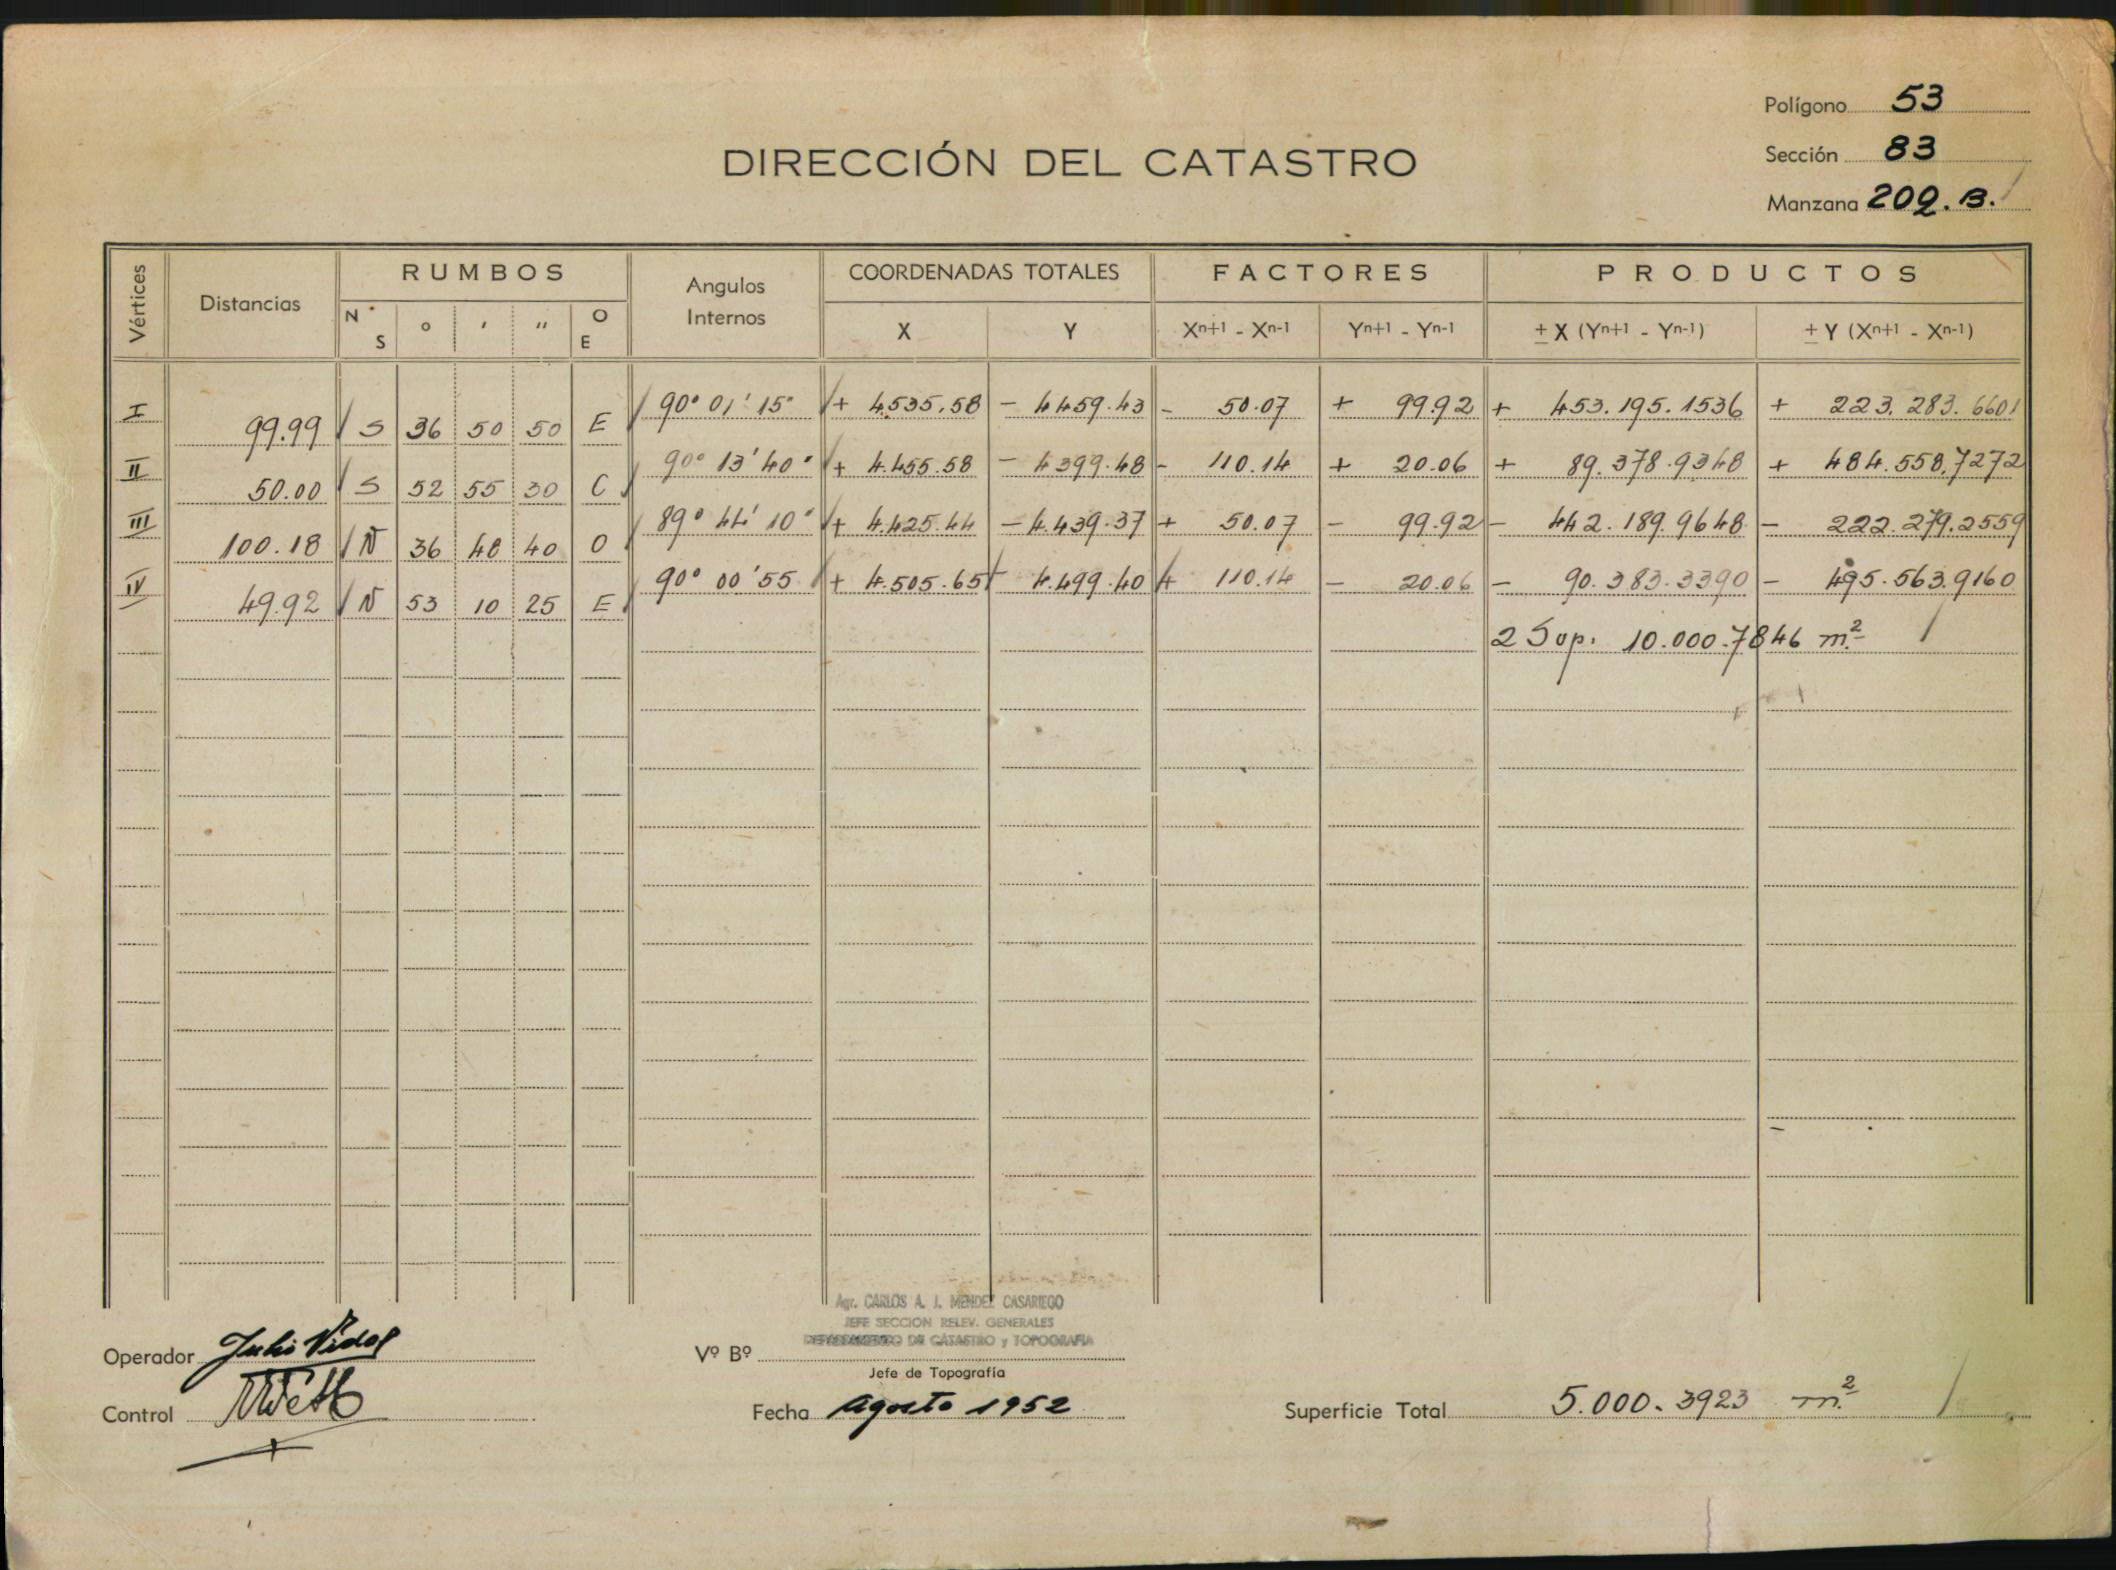 Polígono 53
Sección 83
Manzana 202.B.
DIRECCIÓN DEL CATASTRO
Vértices Distancias RUMBOS Angulos Internos COORDENADAS TOTALES FACTORES PRODUCTOS
N S o ' " O E X Y Xn+1 - Xn-1 Yn+1 - Yn-1 ± X (Yn+1 - Yn-1) ± Y (Xn+1 - Xn-1)
I 90° 01' 15" + 4.535.58 - 4459.43 - 50.07 + 99.92 + 453.195.1536 + 223.283.6601
99.99 S 36 50 50 E
II 90° 13' 40" + 4.455.58 - 4399.48 - 110.14 + 20.06 + 89.378.9348 + 484.558.7272
50.00 S 52 55 30 O
III 89° 44' 10" + 4.425.44 - 4.439.37 + 50.07 - 99.92 - 442.189.9648 - 222.279.2559
100.18 N 36 48 40 O
IV 90° 00' 55 + 4.505.65 - 4.499.40 + 110.14 - 20.06 - 90.383.3390 - 495.563.9160
49.92 N 53 10 25 E
2 Sup. 10.000.7846 m²
Agr. CARLOS A. J. MENDEZ CASARIEGO
JEFE SECCION RELEV. GENERALES
DEPARTAMENTO DE CATASTRO y TOPOGRAFIA
Operador Julio Vidal
Vº Bº
Jefe de Topografía
Control
Fecha Agosto 1952
Superficie Total 5.000.3923 m²